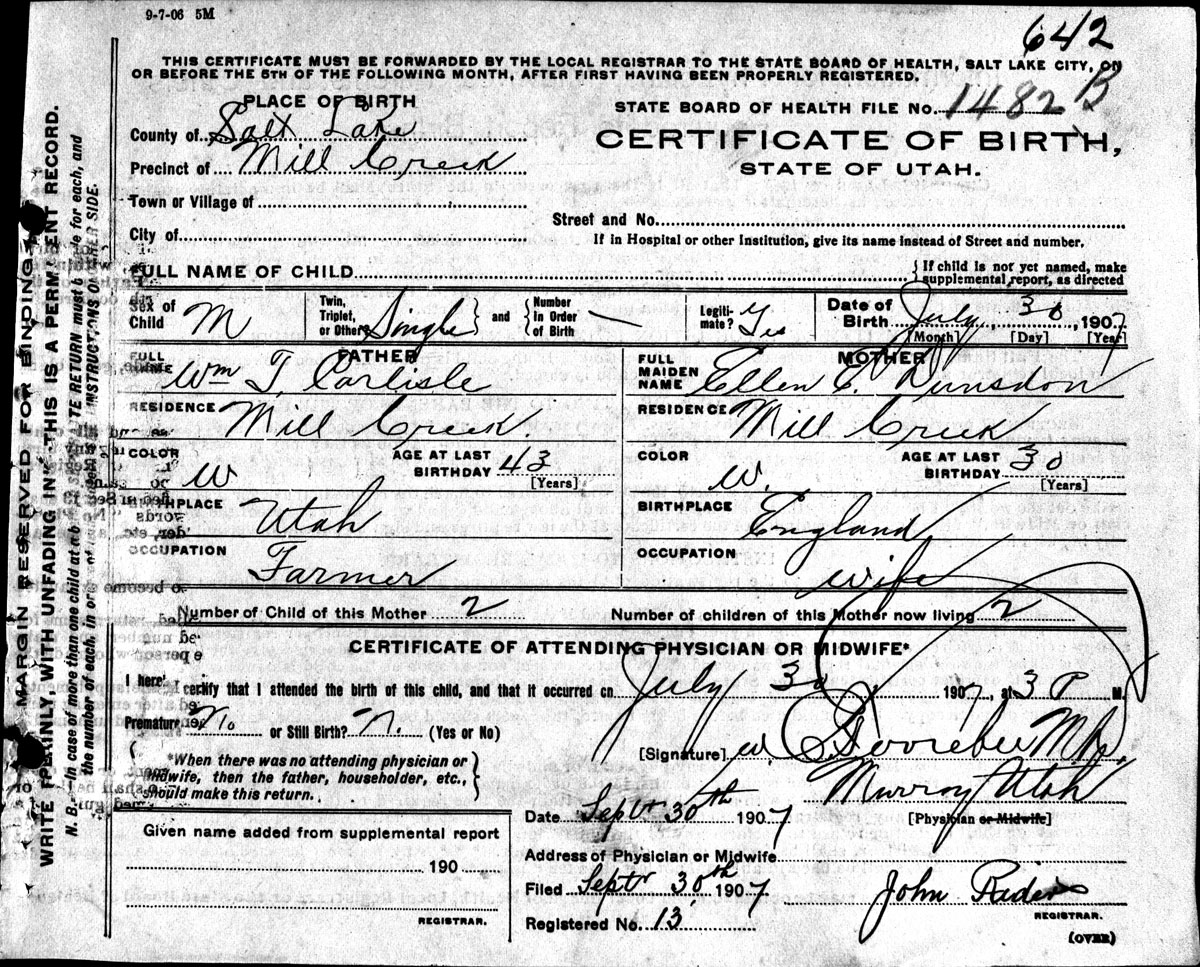 9-7-06 5M
642
THIS CERTIFICATE MUST BE FORWARDED BY THE LOCAL REGISTRAR TO THE STATE BOARD OF HEALTH, SALT LAKE CITY, ON
OR BEFORE THE 5TH OF THE FOLLOWING MONTH, AFTER FIRST HAVING BEEN PROPERLY REGISTERED.
PLACE OF BIRTH
County of Salt Lake
Precinct of Mill Creek
Town or Village of
City of
STATE BOARD OF HEALTH FILE No. 1482 B
CERTIFICATE OF BIRTH,
STATE OF UTAH.
Street and No.
If in Hospital or other Institution, give its name instead of Street and number.
FULL NAME OF CHILD
{If child is not yet named, make
supplemental report, as directed
Sex of Child M
Twin, Triplet, or Other? Single } and { Number in Order of Birth —
Legitimate? Yes
Date of Birth July 30, 1907
[Month] [Day] [Year]
FATHER
FULL NAME Wm T. Carlisle
RESIDENCE Mill Creek.
COLOR W
AGE AT LAST BIRTHDAY 43
[Years]
BIRTHPLACE Utah
OCCUPATION Farmer
MOTHER
FULL MAIDEN NAME Ellen E. Dunsdon
RESIDENCE Mill Creek
COLOR W.
AGE AT LAST BIRTHDAY 30
[Years]
BIRTHPLACE England
OCCUPATION wife
Number of Child of this Mother 2
Number of children of this Mother now living 2
CERTIFICATE OF ATTENDING PHYSICIAN OR MIDWIFE*
I hereby certify that I attended the birth of this child, and that it occurred on July 30 1907, at 3 P M.
Premature? N. or Still Birth? N. (Yes or No)
{*When there was no attending physician or
midwife, then the father, householder, etc.,
should make this return.}
[Signature]
Murray Utah
[Physician or Midwife]
Date Sept 30th 1907
Address of Physician or Midwife
Filed Sept 30th 1907
Registered No. 13
John
REGISTRAR.
(OVER)
Given name added from supplemental report
190
REGISTRAR.
MARGIN RESERVED FOR BINDING.
WRITE PLAINLY WITH UNFADING INK—THIS IS A PERMANENT RECORD.
N. B.—In case of more than one child at a birth, a SEPARATE RETURN must be made for each, and
the number of each, in order of
INSTRUCTIONS OTHER SIDE.